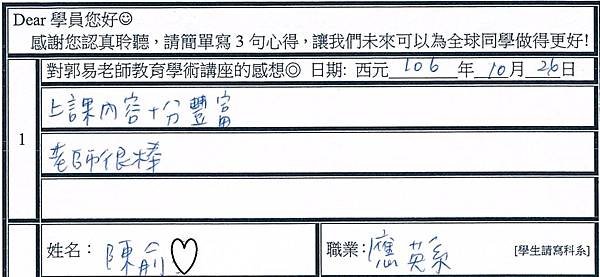 Dear 學員您好☺
感謝您認真聆聽，請簡單寫 3 句心得，讓我們未來可以為全球同學做得更好!
對郭易老師教育學術講座的感想◎ 日期: 西元 106 年 10 月 26 日
1
上課內容十分豐富
老師很棒
姓名： 陳俞♡
職業: 應英系 [學生請寫科系]